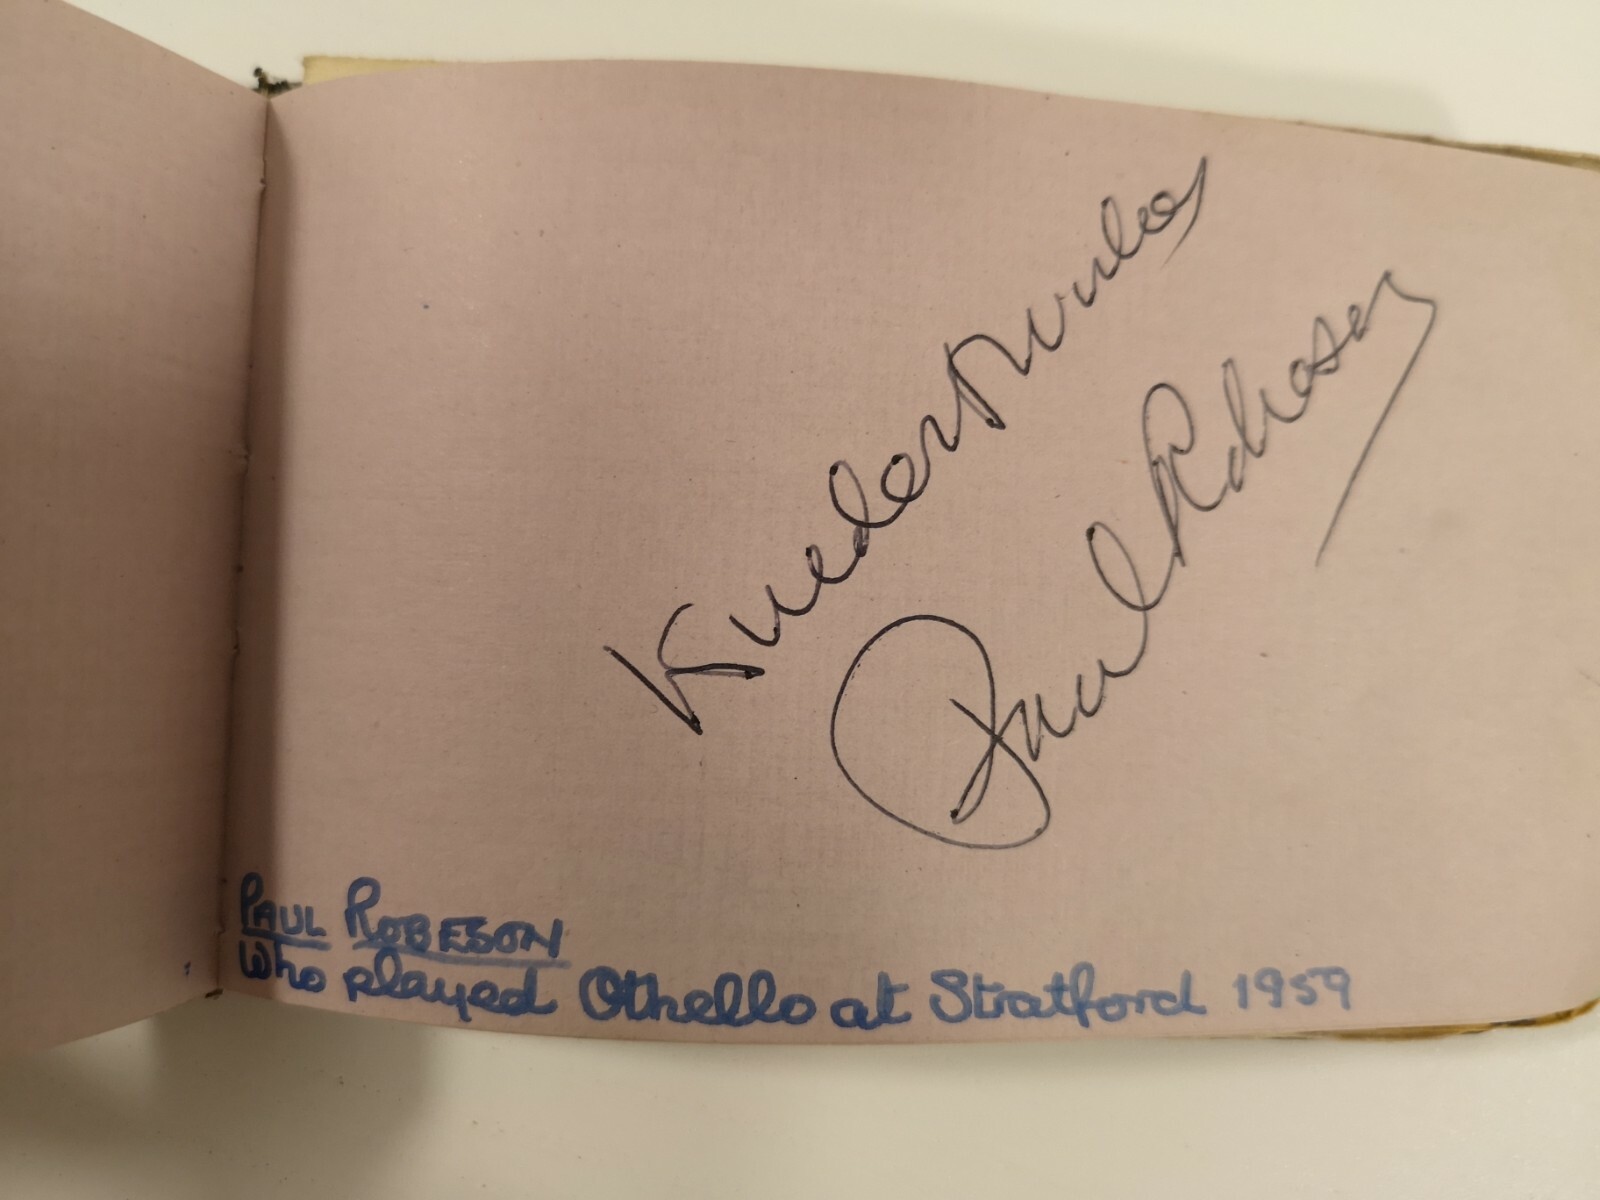 Kindest Wishes
Paul Robeson
PAUL ROBESON
Who played Othello at Stratford 1959